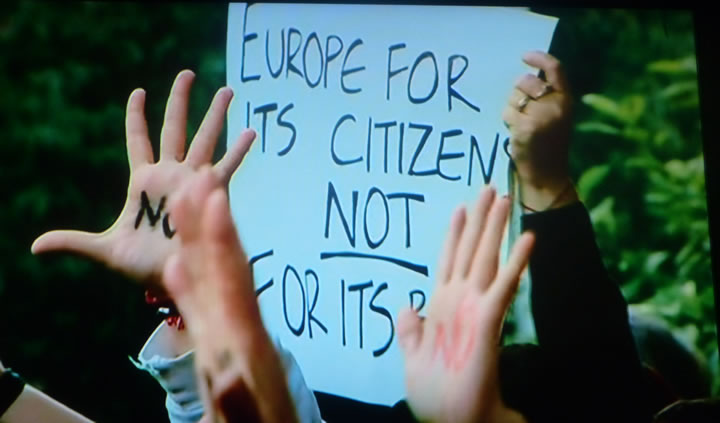 EUROPE FOR
ITS CITIZENS
NOT
FOR ITS
NO
NO